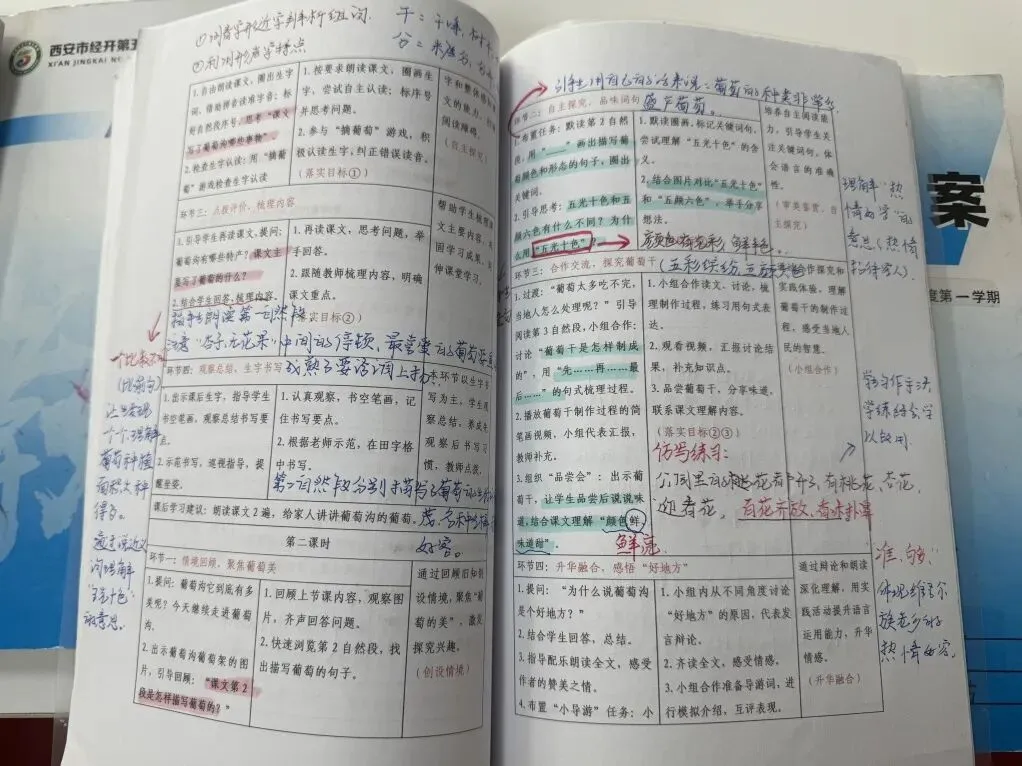 西安市经开第五
XI'AN JINGKAI NO
①同音字形近字辨析组词
②利用形声字特点
1.自由朗读课文，圈出生字
词，借助拼音读准字音；标
好自然段序号，思考“课文
写了葡萄沟哪些事物”
2.检查生字认读：用“摘葡
萄”游戏检查生字认读
1.按要求朗读课文，圈画生
字，尝试自主认读；标序号
并思考问题。
2.参与“摘葡萄”游戏，积
极认读生字，纠正错误读音。
（落实目标①）
字和整体感
文的能力，
阅读障碍。
（自主探究）
环节三：点拨评价，梳理内容
1.引导学生再读课文，提问：
葡萄沟有哪些特产？课文主
要写了葡萄的什么？
2.结合学生回答，梳理内容。
1.再读课文，思考问题，举
手回答。
2.跟随教师梳理内容，明确
课文重点。
（落实目标②）
帮助学生梳理
文主要内容，
固学习成果，
伸课堂学习。
指导朗读第一自然段
注意“杏子、无花果”中间的停顿，最喜爱的葡萄
成熟了要语调上扬
环节四：观察总结，生字书写
1.出示课后生字，指导学生
书空笔画，观察总结书写要
点。
2.示范书写，巡视指导，提
醒坐姿。
1.认真观察，书空笔画，记
住书写要点。
2.根据老师示范，在田字格
中书写。
本环节以生字书
写为主，学生
观察总结，养成先
观察后书写习
惯，教师点拨，
第二自然段分别描写了葡萄的
茂、各种
好客。
课后学习建议：朗读课文2遍，给家人讲讲葡萄沟的葡萄。
第二课时
环节一：情境回顾，聚焦葡萄美
1.提问：葡萄沟它到底有多
美呢？今天继续走进葡萄
沟。
2.出示葡萄沟葡萄架的图
片，引导回顾：“课文第2
段是怎样描写葡萄的？”
1.回顾上节课内容，观察图
片，齐声回答问题。
2.快速浏览第2自然段，找
出描写葡萄的句子。
通过回顾旧知创
设情境，聚焦“葡
萄的美”，激发
探究兴趣。
（创设情境）
让学生发现
个个理解
葡萄种植
面积大种
得多。
通过说近义
词理解
“五光十色”
的意思。
引导学生用自己的话来说：葡萄的种类非常多
盛产葡萄。
环节二：自主探究，品味词句
1.布置任务：默读第2自然
段，用“___”画出描写葡
萄颜色和形态的句子，圈出
关键词。
2.引导思考：五光十色和五
颜六色有什么不同？为什
么用“五光十色”？
1.默读圈画，标记关键词句，
尝试理解“五光十色”的含
义。
2.结合图片对比“五光十色”
和“五颜六色”，举手分享
想法。
培养自主阅读能
力，引导学生关
注关键词句，体
会语言的准确
性。
（审美鉴赏、自
主探究）
颜色有光彩 鲜艳
理解“热
情好客”的
意思（热情
招待客人）
环节三：合作交流，探究葡萄干
1.过渡：“葡萄太多吃不完，
当地人怎么处理呢？”引导
阅读第3自然段，小组合作：
讨论“葡萄干是怎样制成
的”，用“先……再……最
后……”的句式梳理过程。
2.播放葡萄干制作过程的简
笔画视频，小组代表汇报，
教师补充。
3.组织“品尝会”：出示葡
萄干，让学生品尝后说说味
道，结合课文理解“颜色鲜
味道甜”。
1.小组合作读文、讨论，梳
理制作过程，练习用句式表
达。
2.观看视频，汇报讨论结
果，补充知识点。
3.品尝葡萄干，分享味道，
联系课文理解内容。
（落实目标②③）
合作探究和
实践体验，理解
葡萄干的制作过
程，感受当地人
民的智慧。
（小组合作）
仿写练习：
公园里的花有
，有桃花、杏花、
迎春花，百花齐放，香味扑鼻
鲜亮
环节四：升华融合，感悟“好地方”
1.提问：“为什么说葡萄沟
是个好地方？”
2.结合学生回答，总结。
3.指导配乐朗读全文，感受
作者的赞美之情。
4.布置“小导游”任务：小
1.小组内从不同角度讨论
“好地方”的原因，代表发
言辩论。
2.齐读全文，感受情感。
3.小组合作准备导游词，进
行模拟介绍，互评表现。
通过辩论和朗读
深化理解，用实
践活动提升语言
运用能力，升华
情感。
（升华融合）
体现维吾尔
族老乡的
热情好客。
案
度第一学期